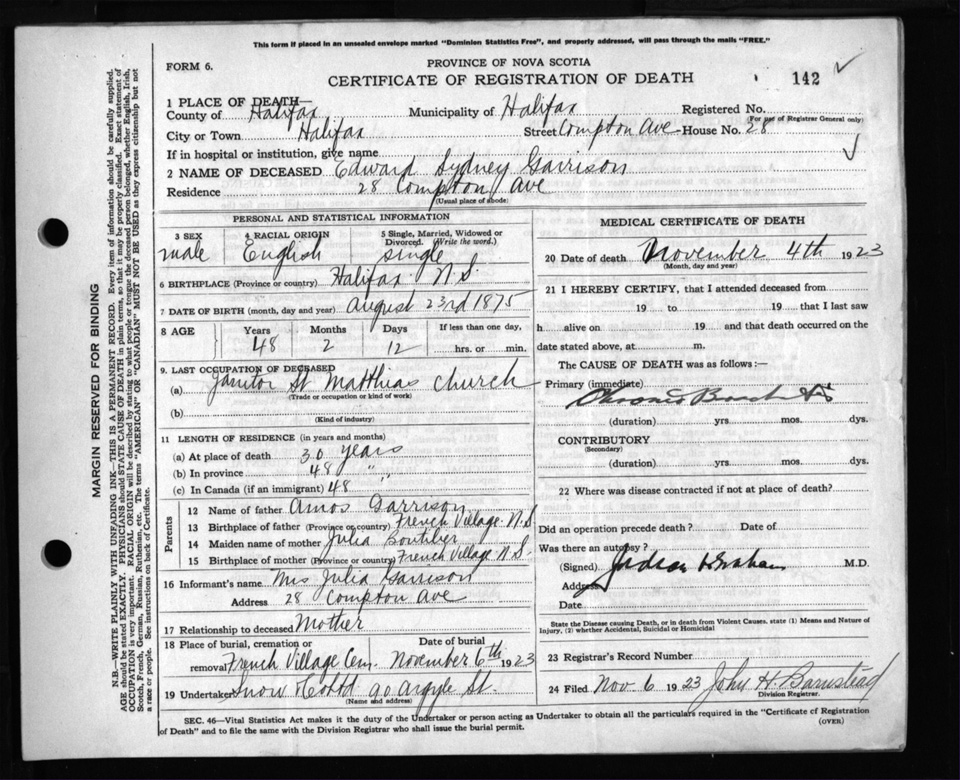 This form if placed in an unsealed envelope marked "Dominion Statistics Free", and properly addressed, will pass through the mails "FREE."
FORM 6.
PROVINCE OF NOVA SCOTIA
CERTIFICATE OF REGISTRATION OF DEATH
142 ✓
1 PLACE OF DEATH—
County of Halifax Municipality of Halifax Registered No.
(For use of Registrar General only)
City or Town Halifax Street Compton Ave House No. 28
If in hospital or institution, give name
2 NAME OF DECEASED Edward Sydney Garrison
Residence 28 Compton Ave
(Usual place of abode)
PERSONAL AND STATISTICAL INFORMATION
3 SEX 4 RACIAL ORIGIN 5 Single, Married, Widowed or Divorced. (Write the word.)
male English single
6 BIRTHPLACE (Province or country) Halifax N.S.
7 DATE OF BIRTH (month, day and year) August 23rd 1875
8 AGE Years Months Days If less than one day,
48 2 12 hrs. or min.
9. LAST OCCUPATION OF DECEASED
(a) Janitor St Matthias Church
(Trade or occupation or kind of work)
(b)
(Kind of industry)
11 LENGTH OF RESIDENCE (in years and months)
(a) At place of death 30 years
(b) In province 48 "
(c) In Canada (if an immigrant) 48 "
Parents
12 Name of father Amos Garrison
13 Birthplace of father (Province or country) French Village N.S
14 Maiden name of mother Julia Boutilier
15 Birthplace of mother (Province or country) French Village N.S.
16 Informant's name Mrs Julia Garrison
Address 28 Compton Ave
17 Relationship to deceased Mother
18 Place of burial, cremation or Date of burial
removal French Village Cem. November 6th 1923
19 Undertaker Snow & Co Ltd 90 Argyle St.
(Name and address)
MEDICAL CERTIFICATE OF DEATH
20 Date of death November 4th 1923
(Month, day and year)
21 I HEREBY CERTIFY, that I attended deceased from
19 to 19 that I last saw
h alive on 19 and that death occurred on the
date stated above, at m.
The CAUSE OF DEATH was as follows:
Primary (immediate)
Chronic Bronchitis
(duration) yrs mos. dys.
CONTRIBUTORY
(Secondary)
(duration) yrs. mos. dys.
22 Where was disease contracted if not at place of death?
Did an operation precede death? Date of
Was there an autopsy?
(Signed) Judson Graham M.D.
Address
Date
State the Disease causing Death, or in death from Violent Causes, state (1) Means and Nature of
Injury, (2) whether Accidental, Suicidal or Homicidal
23 Registrar's Record Number
24 Filed Nov 6 1923 John H. Barnstead
Division Registrar.
SEC. 46—Vital Statistics Act makes it the duty of the Undertaker or person acting as Undertaker to obtain all the particulars required in the "Certificate of Registration
of Death" and to file the same with the Division Registrar who shall issue the burial permit.
(OVER)
MARGIN RESERVED FOR BINDING
N.B.—WRITE PLAINLY WITH UNFADING INK—THIS IS A PERMANENT RECORD. Every item of information should be carefully supplied.
AGE should be stated EXACTLY. PHYSICIANS should STATE CAUSE OF DEATH in plain terms, so that it may be properly classified. Exact statement of
OCCUPATION is very important. RACIAL ORIGIN will be described by stating to what people or tongue the deceased person belonged, whether English, Irish,
Scotch, French, German, Russian, Ruthenian, etc. The terms "AMERICAN" OR "CANADIAN" MUST NOT BE USED as they express citizenship but not
a race or people. See instructions on back of Certificate.